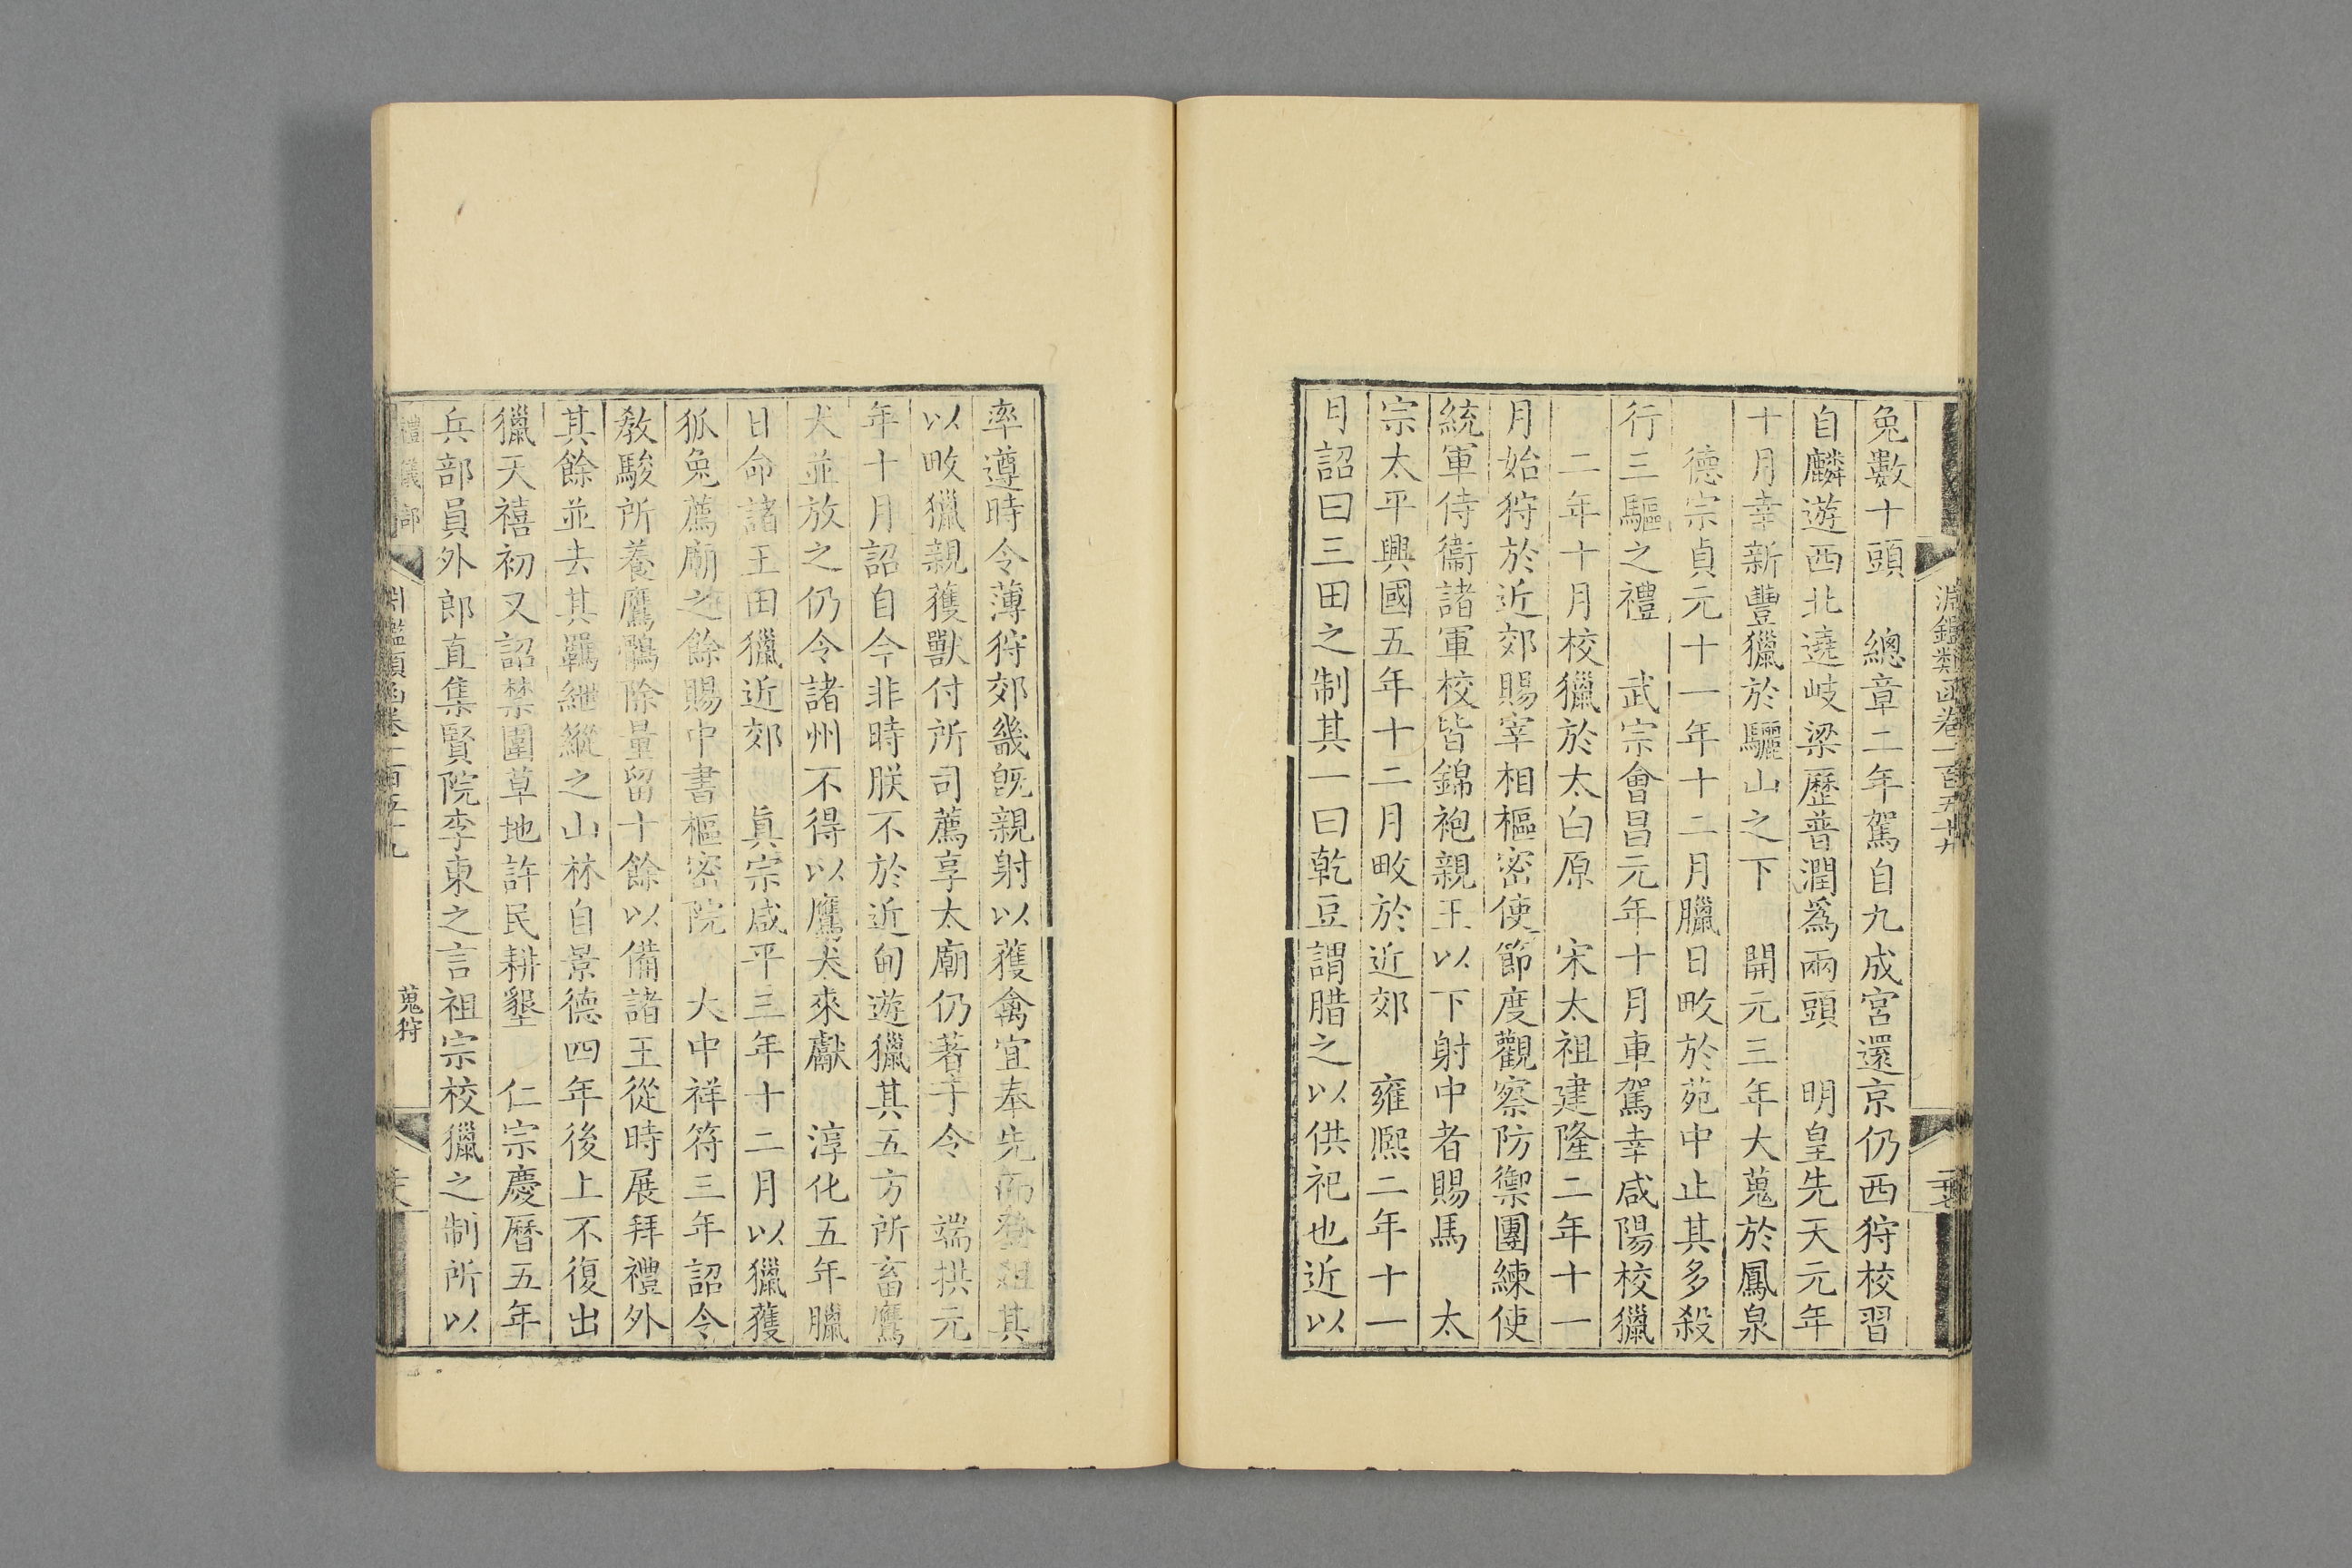 淵鑑類函卷一百五十九
兔數十頭　總章二年駕自九成宮還京仍西狩校習
自麟遊西北遶岐梁歷普潤爲兩頭　明皇先天元年
十月幸新豐獵於驪山之下　開元三年大蒐於鳳泉
德宗貞元十一年十二月臘日畋於苑中止其多殺
行三驅之禮　武宗會昌元年十月車駕幸咸陽校獵
二年十月校獵於太白原　宋太祖建隆二年十一
月始狩於近郊賜宰相樞密使節度觀察防禦團練使
統軍侍衞諸軍校皆錦袍親王以下射中者賜馬　太
宗太平興國五年十二月畋於近郊　雍熙二年十一
月詔曰三田之制其一曰乾豆謂腊之以供祀也近以
率遵時令薄狩郊畿旣親射以獲禽宜奉先而登俎其
以畋獵親獲獸付所司薦享太廟仍著于令　端拱元
年十月詔自今非時朕不於近甸遊獵其五方所畜鷹
犬並放之仍令諸州不得以鷹犬來獻　淳化五年臘
日命諸王田獵近郊　眞宗咸平三年十二月以獵獲
狐兔薦廟之餘賜中書樞密院　大中祥符三年詔令
敎駿所養鷹鶻除量留十餘以備諸王從時展拜禮外
其餘並去其羈紲縱之山林自景德四年後上不復出
獵天禧初又詔禁圍草地許民耕墾　仁宗慶曆五年
兵部員外郎直集賢院李東之言祖宗校獵之制所以
禮儀部　淵鑑類函卷一百五十九　蒐狩